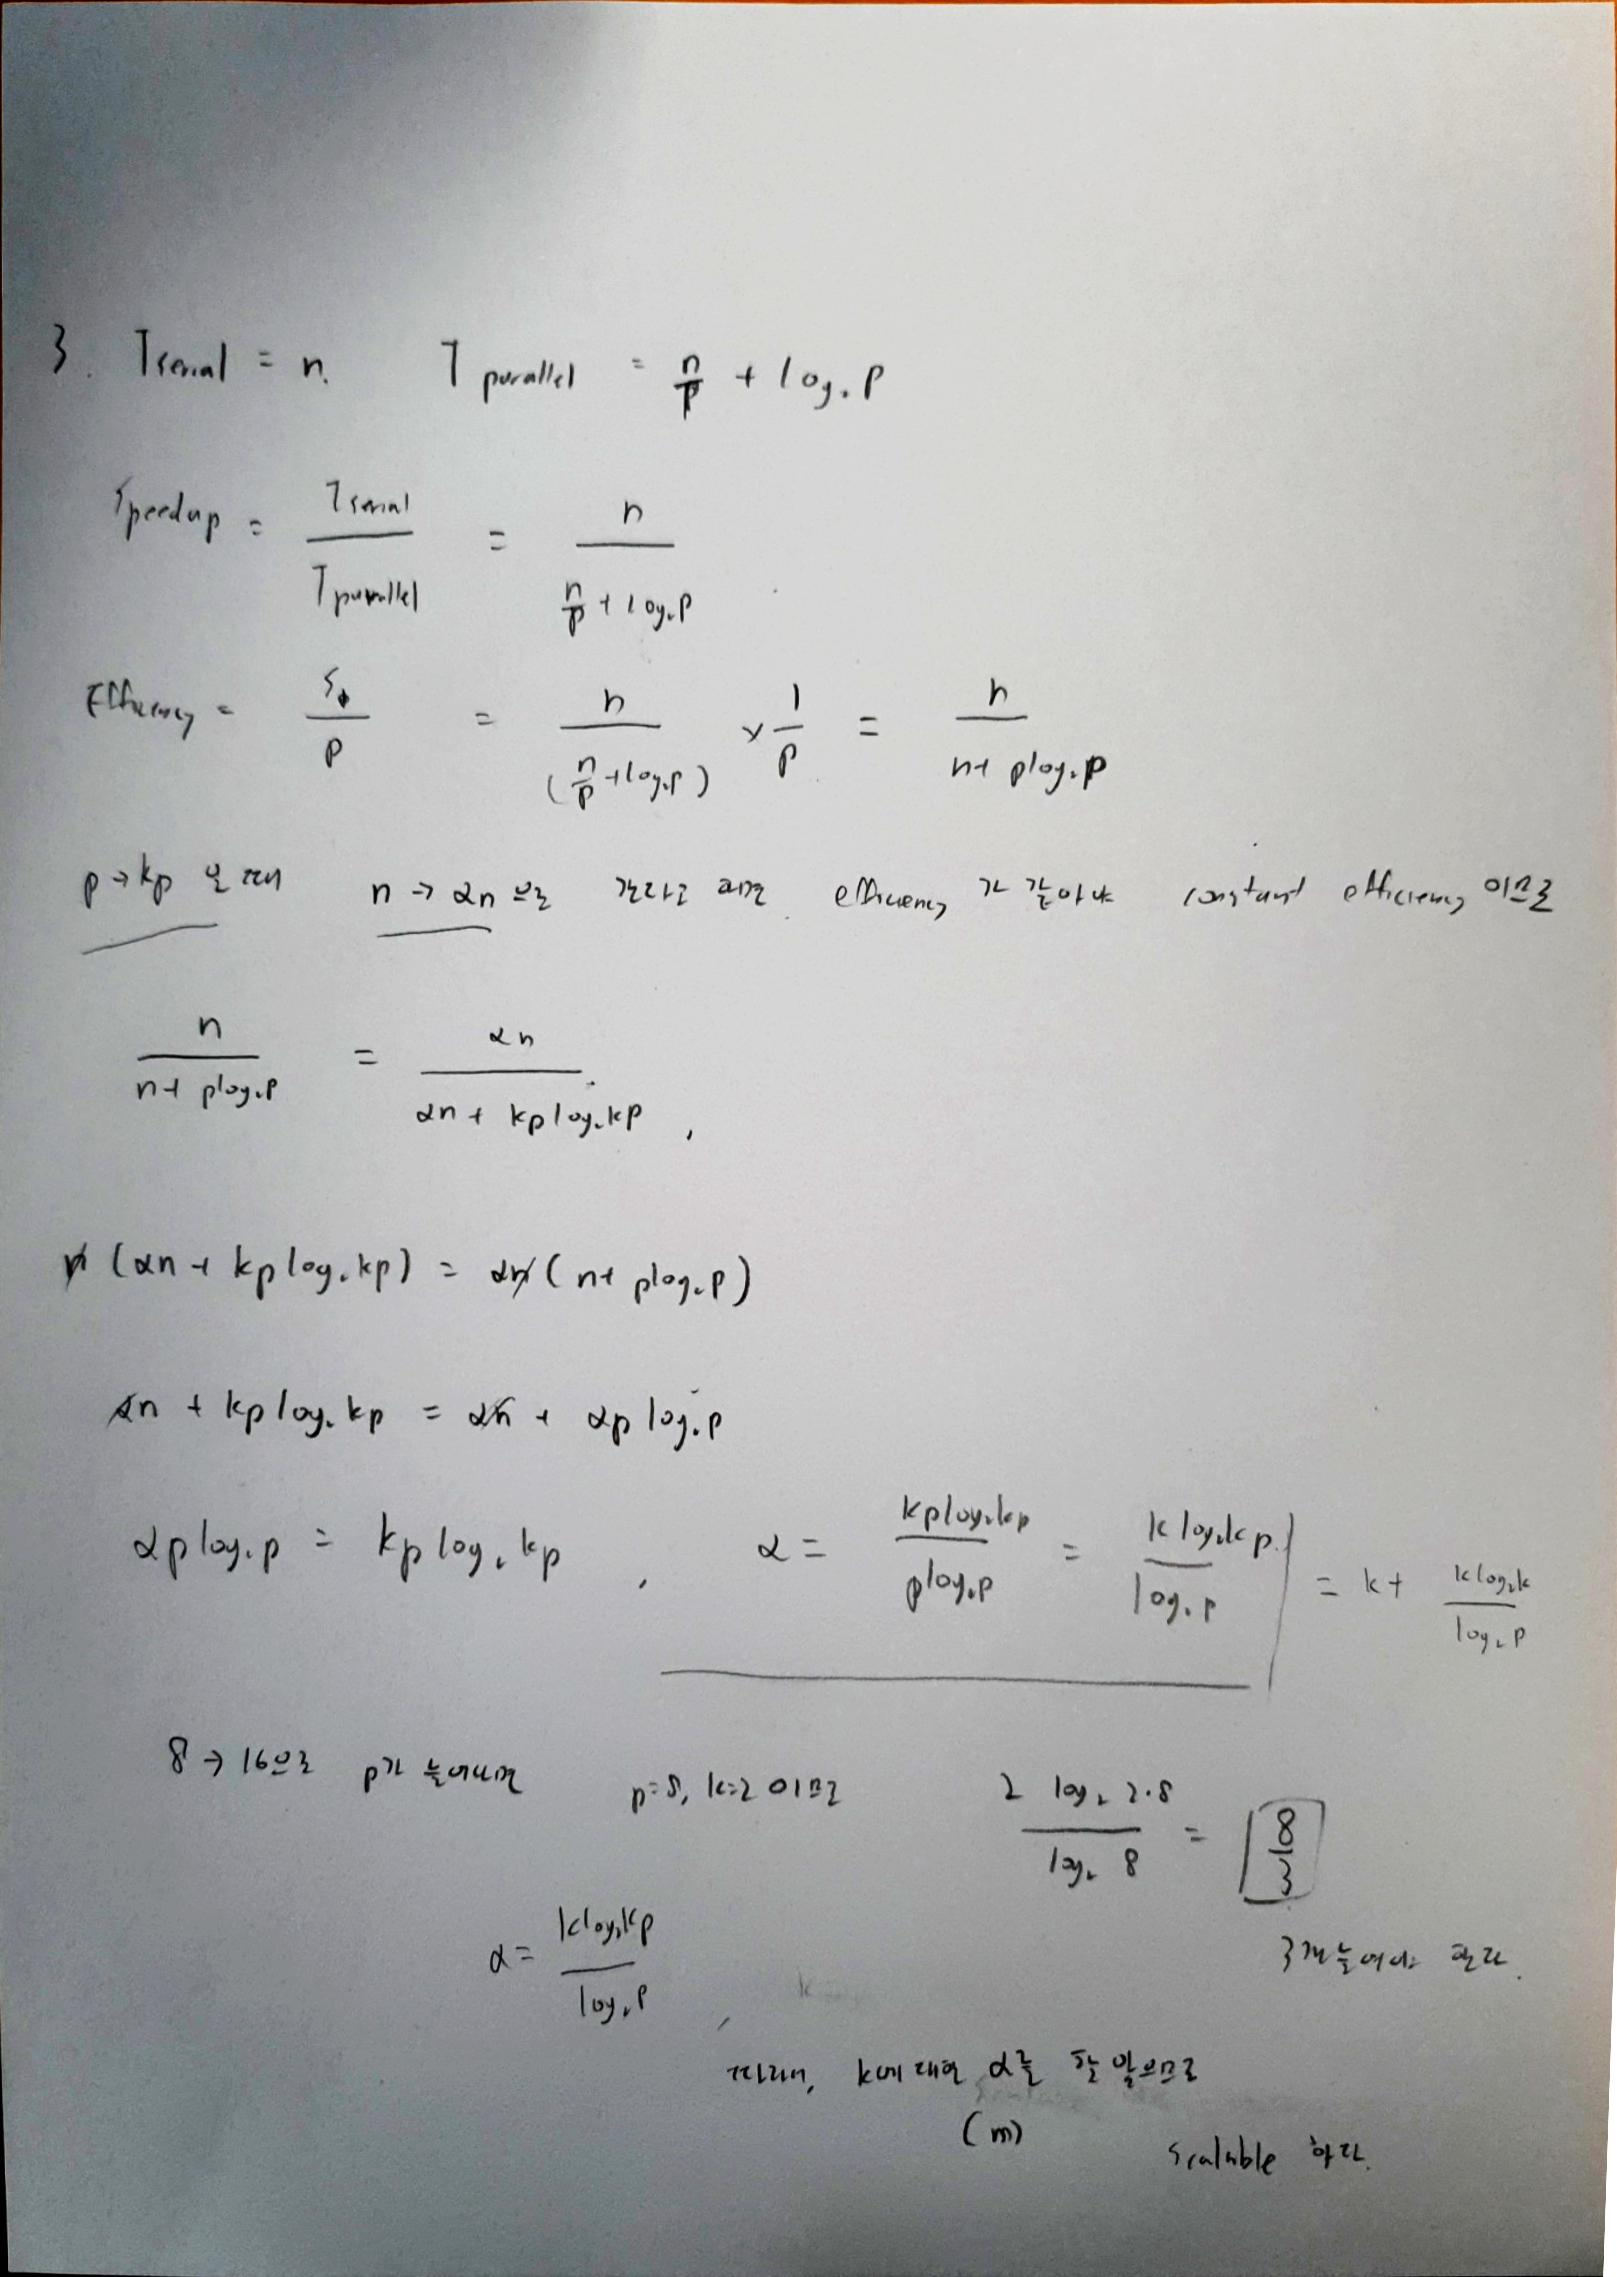 3. Tserial = n. Tparallel = n/p + log₂p
Speedup = Tserial / Tparallel = n / (n/p + log₂p)
Efficiency = S / p = n / (n/p + log₂p) × 1/p = n / (n + plog₂p)
p → kp 일 때 n → αn 으로 간다고 하면 efficiency 가 같아야 constant efficiency 이므로
n / (n + plog₂p) = αn / (αn + kplog₂kp),
n (αn + kplog₂kp) = αn (n + plog₂p)
αn + kplog₂kp = αn + αplog₂p
αplog₂p = kplog₂kp, α = kplog₂kp / plog₂p = klog₂kp / log₂p = k + klog₂k / log₂p
8 → 16으로 p가 늘어나면 p=8, k=2 이므로 2 log₂ 2·8 / log₂ 8 = 8/3
α = klog₂kp / log₂p, 늘어야 한다.
따라서, k에 대한 α를 알으므로
(m)
scalable 하다.